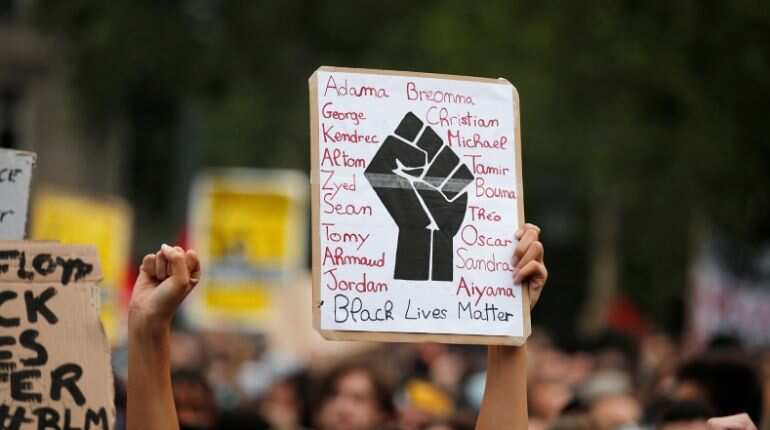 Adama Breonna
George Christian
Kendrec Michael
Altom Tamir
Zyed Bouma
Sean Théo
Tomy Oscar
Armaud Sandra
Jordan Aiyana
Black Lives Matter
Floyd
CK
ES
ER
#BLM